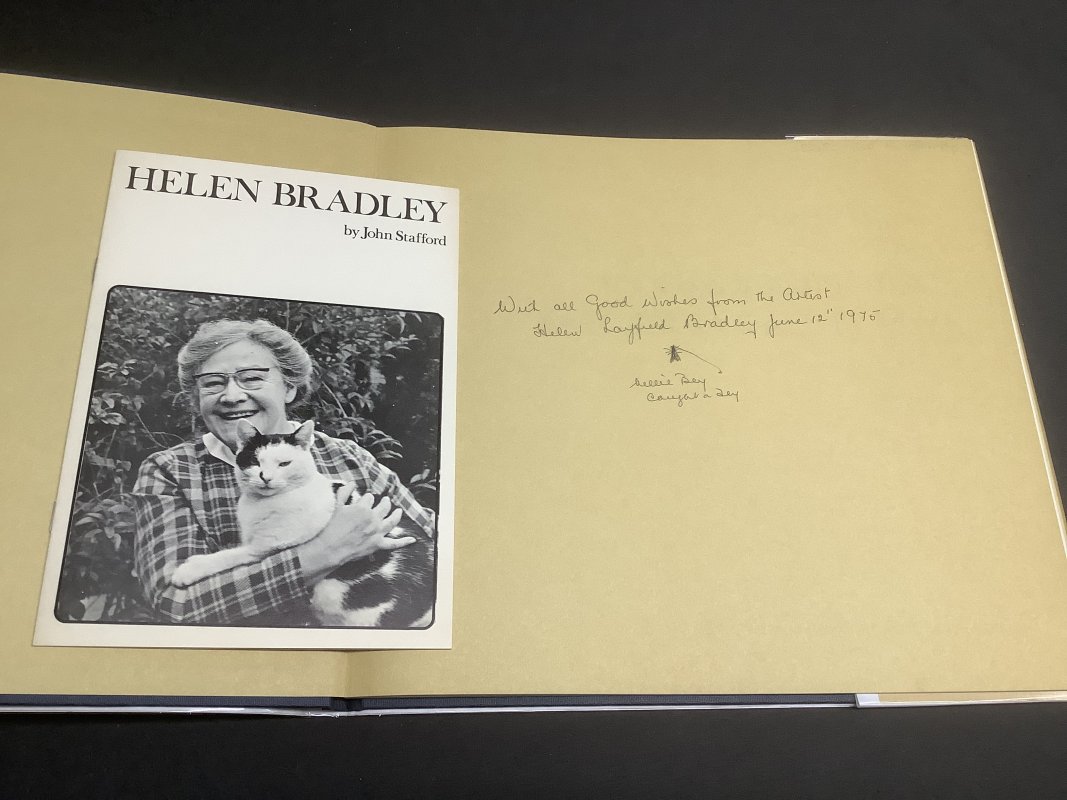 HELEN BRADLEY
by John Stafford
With all Good Wishes from the Artist
Helen Layfield Bradley June 12" 1975
Bey
Caught a